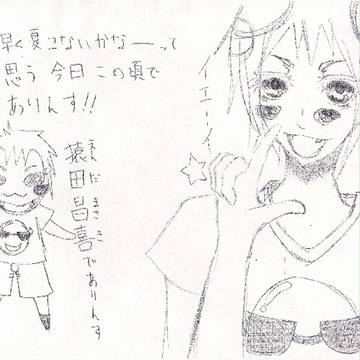 早く夏こないかなーって
思う今日この頃で
ありんす!!
イエーイ☆
猿田昌喜でありんす